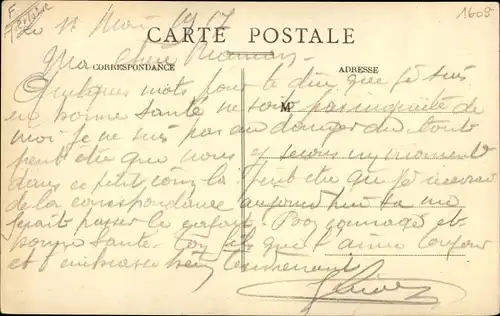 Le 11 Mai 1917
1609
CARTE POSTALE
Ma chère Maman
CORRESPONDANCE
ADRESSE
Quelques mots pour te dire que je suis
M
en bonne santé ne soit pas inquiète de
moi je ne suis pas au danger du tout
peut etre que nous y serons un moment
dans ce petit coin la peut etre que je
de la correspondance aujourd hui sa me
ferait passer le cafard. Bon courage et
bonne sante. Ton fils que t aime toujour
et t embrasse bien tendrement